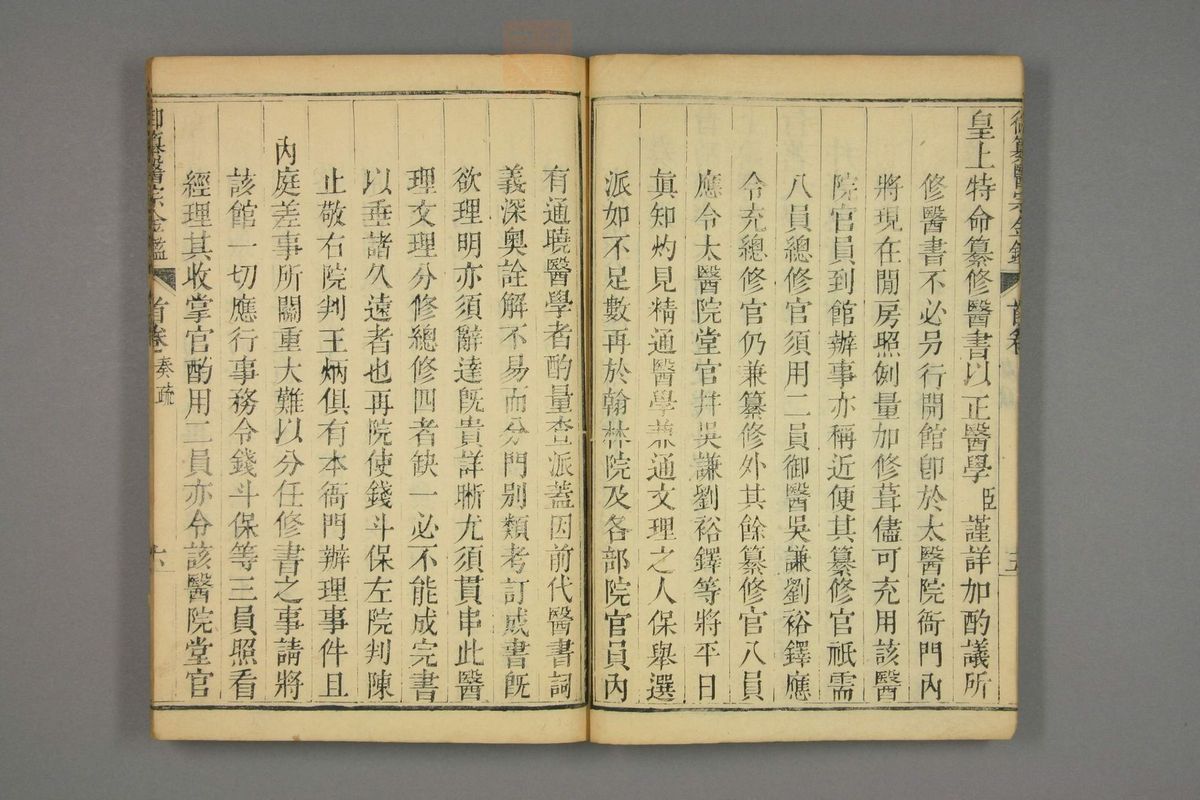 皇上特命纂修醫書以正醫學臣謹詳加酌議所
修醫書不必另行開館卽於太醫院衙門內
將現在閒房照例量加修葺儘可充用該醫
院官員到館辦事亦稱近便其纂修官祇需
八員總修官須用二員御醫吳謙劉裕鐸應
令充總修官仍兼纂修外其餘纂修官八員
應令太醫院堂官幷吳謙劉裕鐸等將平日
眞知灼見精通醫學兼通文理之人保舉選
派如不足數再於翰林院及各部院官員內
有通曉醫學者酌量查派蓋因前代醫書詞
義深奧詮解不易而分門别類考訂成書旣
欲理明亦須辭達旣貴詳晰尤須貫串此醫
理文理分修總修四者缺一必不能成完書
以垂諸久遠者也再院使錢斗保左院判陳
止敬右院判王炳俱有本衙門辦理事件且
內庭差事所關重大難以分任修書之事請將
該館一切應行事務令錢斗保等三員照看
經理其收掌官酌用二員亦令該醫院堂官
御纂醫宗金鑑 首卷 奏疏 六